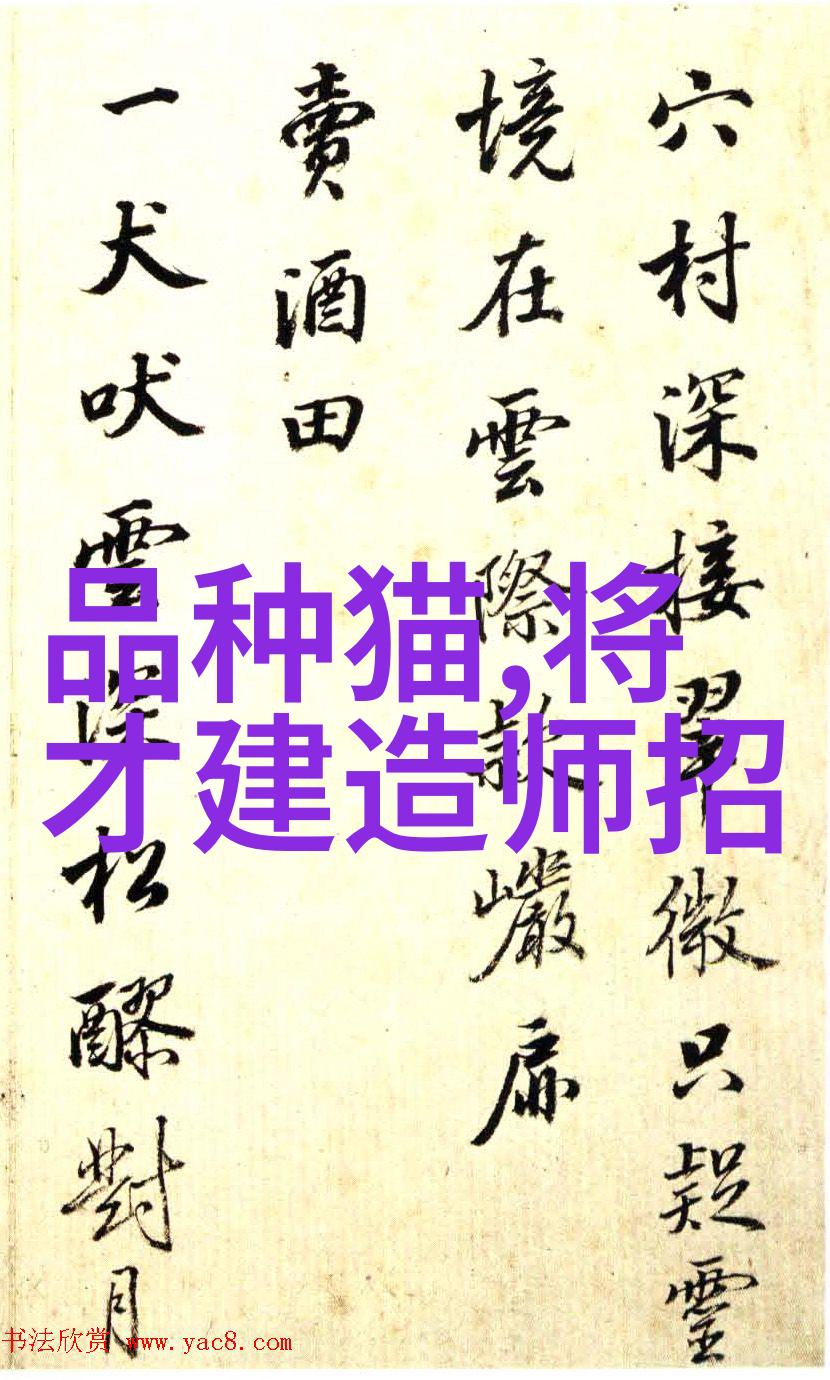 穴村深接翠微只疑靈
境在雲際款巖扉
賣酒田
一犬吠雲深松醪對月
品种猫,将
才建造师招
书法欣赏 www.yac8.com